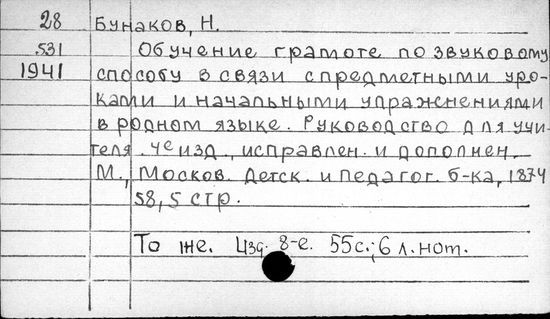 28 Бунаков, Н.
531 Обучение грамоте по звуковому
1941 способу в связи с предметными уро-
ками и начальными упражнениями
в родном языке. Руководство для учи-
теля. изд., исправлен. и дополнен.
М., Москов. Детск. и педагог. б-ка, 1874
58, 5 стр.
То же. Изд. 8-е. 55с.; 6 л. нот.